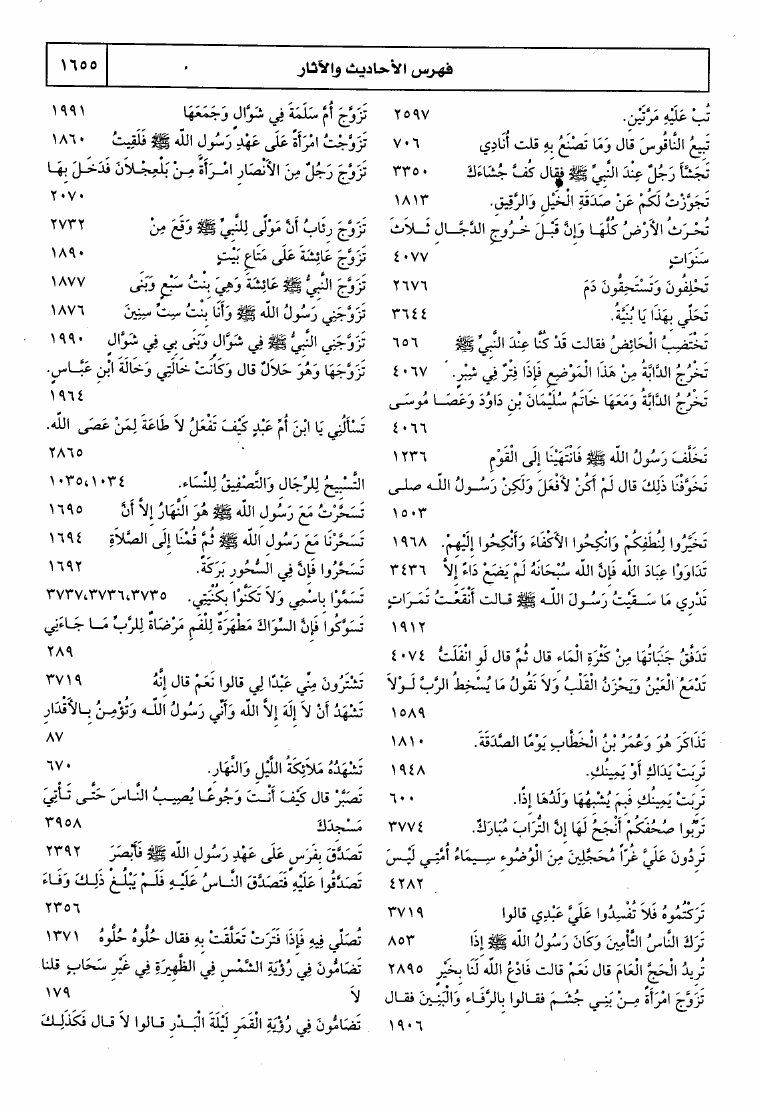 فهرس الأحاديث والآثار
١٦٥٥
تُبْ عَلَيْهِ مَرَّتَيْنِ. ٢٥٩٧
تَبِيعُ النَّاقُوسَ قال وَمَا تَصْنَعُ بِهِ قلت أُنَادِي ٧٠٦
تَجَشَّأَ رَجُلٌ عِنْدَ النَّبِيِّ ﷺ فقال كُفَّ جُشَاءَكَ ٣٣٥٠
تَجَوَّزْتُ لَكُمْ عَنْ صَدَقَةِ الْخَيْلِ وَالرَّقِيقِ. ١٨١٣
تُحْرَثُ الأَرْضُ كُلُّهَا وَإِنَّ قَبْلَ خُرُوجِ الدَّجَّالِ ثَلاَثَ
سَنَوَاتٍ ٤٠٧٧
تَحْلِفُونَ وَتَسْتَحِقُّونَ دَمَ ٢٦٧٦
تَحَلَّي بِهَذَا يَا بُنَيَّةُ. ٣٦٤٤
تَخْتَضِبُ الْحَائِضُ فقالت قَدْ كُنَّا عِنْدَ النَّبِيِّ ﷺ ٦٥٦
تَخْرُجُ الدَّابَّةُ مِنْ هَذَا الْمَوْضِعِ فَإِذَا فِتْرٌ فِي شِبْرٍ. ٤٠٦٧
تَخْرُجُ الدَّابَّةُ وَمَعَهَا خَاتَمُ سُلَيْمَانَ بْنِ دَاوُدَ وَعَصَا مُوسَى
٤٠٦٦
تَخَلَّفَ رَسُولُ اللَّه ﷺ فَانْتَهَيْنَا إِلَى الْقَوْمِ ١٢٣٦
تَخَوَّفْنَا ذَلِكَ قال لَمْ أَكُنْ لأَفْعَلَ وَلَكِنْ رَسُولُ اللَّه صلى
١٥٠٣
تَخَيَّرُوا لِنُطَفِكُمْ وَانْكِحُوا الأَكْفَاءَ وَأَنْكِحُوا إِلَيْهِمْ. ١٩٦٨
تَدَاوَوْا عِبَادَ اللَّه فَإِنَّ اللَّه سُبْحَانَهُ لَمْ يَضَعْ دَاءً إِلاَّ ٣٤٣٦
تَدْرِي مَا سَقَيْتُ رَسُولَ اللَّه ﷺ قالت أَنْقَعْتُ تَمَرَاتٍ
١٩١٢
تَدَفَّقُ جَنَبَاتُهَا مِنْ كَثْرَةِ الْمَاءِ قال ثُمَّ قال لَوِ انْفَلَتُّ ٤٠٧٤
تَدْمَعُ الْعَيْنُ وَيَحْزَنُ الْقَلْبُ وَلاَ نَقُولُ مَا يُسْخِطُ الرَّبَّ لَوْلاَ
١٥٨٩
تَذَاكَرَ هُوَ وَعُمَرُ بْنُ الْخَطَّابِ يَوْمًا الصَّدَقَةَ. ١٨١٠
تَرِبَتْ يَدَاكِ أَوْ يَمِينُكِ. ١٩٤٨
تَرِبَتْ يَمِينُكِ فَبِمَ يُشْبِهُهَا وَلَدُهَا إِذًا. ٦٠٠
تَرِّبُوا صُحُفَكُمْ أَنْجَحُ لَهَا إِنَّ التُّرَابَ مُبَارَكٌ. ٣٧٧٤
تَرِدُونَ عَلَيَّ غُرًّا مُحَجَّلِينَ مِنَ الْوُضُوءِ سِيمَاءُ أُمَّتِي لَيْسَ
٤٢٨٢
تَرَكْتُمُوهُ فَلاَ تُفْسِدُوا عَلَيَّ عَبْدِي قالوا ٣٧١٩
تَرَكَ النَّاسُ التَّأْمِينَ وَكَانَ رَسُولُ اللَّه ﷺ إِذَا ٨٥٣
تُرِيدُ الْحَجَّ الْعَامَ قال نَعَمْ قالت فَادْعُ اللَّه لَنَا بِخَيْرٍ ٢٨٩٥
تَزَوَّجَ امْرَأَةً مِنْ بَنِي جُشَمَ فقالوا بِالرَّفَاءِ وَالْبَنِينَ فقال
١٩٠٦
تَزَوَّجَ أُمَّ سَلَمَةَ فِي شَوَّالٍ وَجَمَعَهَا ١٩٩١
تَزَوَّجْتُ امْرَأَةً عَلَى عَهْدِ رَسُولِ اللَّه ﷺ فَلَقِيتُ ١٨٦٠
تَزَوَّجَ رَجُلٌ مِنَ الأَنْصَارِ امْرَأَةً مِنْ بَلْعِجْلاَنَ فَدَخَلَ بِهَا
٢٠٧٠
تَزَوَّجَ رِئَابُ أَنَّ مَوْلًى لِلنَّبِيِّ ﷺ وَقَعَ مِنْ ٢٧٣٢
تَزَوَّجَ عَائِشَةَ عَلَى مَتَاعِ بَيْتٍ ١٨٩٠
تَزَوَّجَ النَّبِيُّ ﷺ عَائِشَةَ وَهِيَ بِنْتُ سَبْعٍ وَبَنَى ١٨٧٧
تَزَوَّجَنِي رَسُولُ اللَّه ﷺ وَأَنَا بِنْتُ سِتِّ سِنِينَ ١٨٧٦
تَزَوَّجَنِي النَّبِيُّ ﷺ فِي شَوَّالٍ وَبَنَى بِي فِي شَوَّالٍ ١٩٩٠
تَزَوَّجَهَا وَهُوَ حَلاَلٌ قال وَكَانَتْ خَالَتِي وَخَالَةَ ابْنِ عَبَّاسٍ.
١٩٦٤
تَسْأَلُنِي يَا ابْنَ أُمِّ عَبْدٍ كَيْفَ تَفْعَلُ لاَ طَاعَةَ لِمَنْ عَصَى اللَّه.
٢٨٦٥
التَّسْبِيحُ لِلرِّجَالِ وَالتَّصْفِيقُ لِلنِّسَاءِ. ١٠٣٤، ١٠٣٥
تَسَحَّرْتُ مَعَ رَسُولِ اللَّه ﷺ هُوَ النَّهَارُ إِلاَّ أَنَّ ١٦٩٥
تَسَحَّرْنَا مَعَ رَسُولِ اللَّه ﷺ ثُمَّ قُمْنَا إِلَى الصَّلاَةِ ١٦٩٤
تَسَحَّرُوا فَإِنَّ فِي السُّحُورِ بَرَكَةً. ١٦٩٢
تَسَمَّوْا بِاسْمِي وَلاَ تَكَنَّوْا بِكُنْيَتِي. ٣٧٣٥، ٣٧٣٦، ٣٧٣٧
تَسَوَّكُوا فَإِنَّ السِّوَاكَ مَطْهَرَةٌ لِلْفَمِ مَرْضَاةٌ لِلرَّبِّ مَا جَاءَنِي
٢٨٩
تَشْتَرُونَ مِنِّي عَبْدًا لِي قالوا نَعَمْ قال إِنَّهُ ٣٧١٩
تَشْهَدُ أَنْ لاَ إِلَهَ إِلاَّ اللَّه وَأَنِّي رَسُولُ اللَّه وَتُؤْمِنُ بِالأَقْدَارِ
٨٧
تَشْهَدُهُ مَلاَئِكَةُ اللَّيْلِ وَالنَّهَارِ. ٦٧٠
تَصَبَّرْ قال كَيْفَ أَنْتَ وَجُوعًا يُصِيبُ النَّاسَ حَتَّى تَأْتِيَ
مَسْجِدَكَ ٣٩٥٨
تَصَدَّقَ بِفَرَسٍ عَلَى عَهْدِ رَسُولِ اللَّه ﷺ فَأَبْصَرَ ٢٣٩٢
تَصَدَّقُوا عَلَيْهِ فَتَصَدَّقَ النَّاسُ عَلَيْهِ فَلَمْ يَبْلُغْ ذَلِكَ وَفَاءَ
٢٣٥٦
تُصَلِّي فِيهِ فَإِذَا فَتَرَتْ تَعَلَّقَتْ بِهِ فقال حُلُّوهُ حُلُّوهُ ١٣٧١
تَضَامُّونَ فِي رُؤْيَةِ الشَّمْسِ فِي الظَّهِيرَةِ فِي غَيْرِ سَحَابٍ قلنا
لاَ ١٧٩
تَضَامُّونَ فِي رُؤْيَةِ الْقَمَرِ لَيْلَةَ الْبَدْرِ قالوا لاَ قال فَكَذَلِكَ